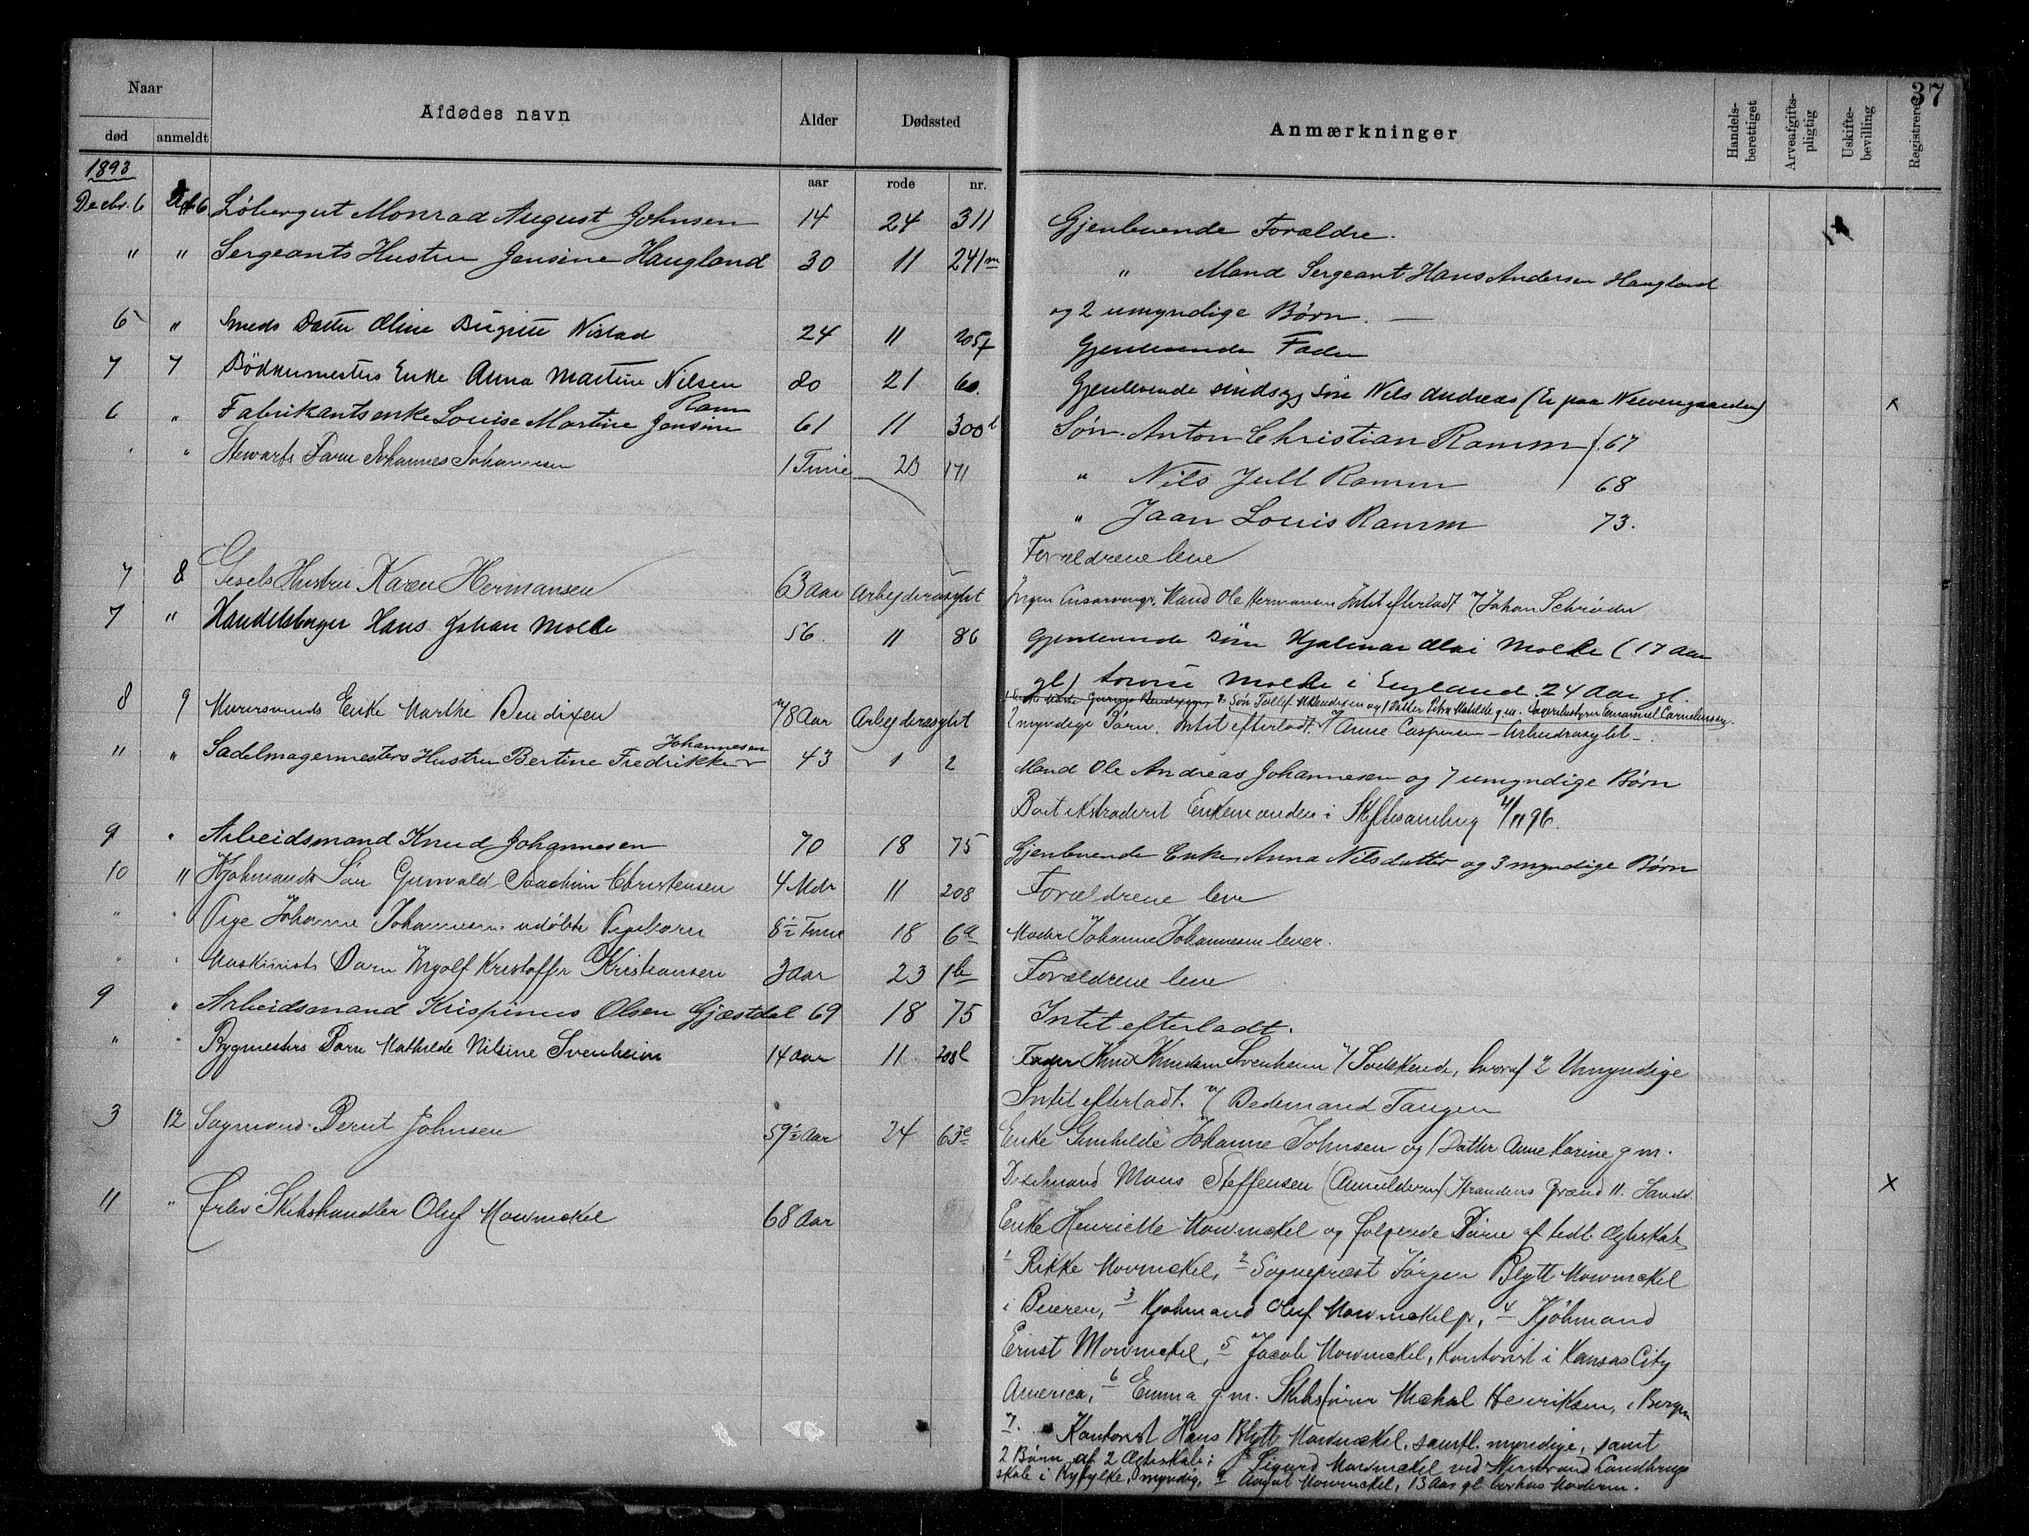 37
Naar
Afdødes navn
Alder
Dødssted
Anmærkninger
Handels-berettiget
Arveafgifts-pligtig
Uskifte-bevilling
Registreret
død
anmeldt
1893
aar
rode
nr.
Decbr. 6 6 Løbergut Monrad August Johnsen 14 24 311 Gjenlevende Forældre.
" " Sergeants Hustru Jensine Haugland 30 11 241m " Mand Sergeant Hans Andersen Haugland
og 2 umyndige Børn. —
6 " Smeds Datter Aline Birgitte Nistad 24 11 205f Gjenlevende Fader
7 7 Bødkermesters Enke Anna Martine Nilsen 80 21 60. Gjenlevende sindsyg søn Nils Andreas (Er paa Nevengaarden) x
6 " Fabrikantsenke Louise Martine Jensine Ramm 61 11 300l Søn. Anton Christian Ramm f. 67
" " Stewarts Barn Johannes Johannesen 1 Time 23 171 " Nils Juell Ramm 68
" Jaan Louis Ramm 73.
Forældrene leve
7 8 Hustru Karen Hermansen 63 Aar Arbejderasylet Ingen Mand Ole Hermansen Intet efterladt Johan Schrøder
7 " Handelsborger Hans Johan Molke 56. 11 86 Gjenlevende Søn Hjalmar Molke (17 Aar
gl) Lovise Molke i England. 24 Aar gl.
8 9 Murersvends Enke Marthe Bendixen 78 Aar Arbejderasylet Søn Tollef M Bendixen og 1 Datter Petra Matilde g.m. Emanuel Corneliussen
2 myndige Børn. Intet efterladt. Anne Caspersen – Arbeidrasylet –
" " Sadelmagermesters Hustru Bertine Fredrikke Johannesen 43 1 2 Mand Ole Andreas Johannesen og 7 umyndige Børn
Boet extraderet Enkemanden i Skiftesamling 4/11 96.
9 " Arbeidsmand Knud Johannesen 70 18 75 Gjenlevende Enke Anna Nilsdatter og 3 myndige Børn
10 " Kjøbmands Søn Gunvald Joachim Christensen 4 Mdr 11 208 Forældrene leve
" " Pige Johanne Johannesens udøbte Pigebarn 8½ Time 18 6a Moder Johanne Johannesen lever.
" " Maskinists Barn Ingolf Kristoffer Kristiansen 3 Aar 23 1b Forældrene leve
9 " Arbeidsmand Krispinus Olsen Gjæstdal 69 18 75 Intet efterladt.
" " Bygmesters Barn Mathilde Nilsine Svenheim 14 Aar 11 208l Fader Knud Knudsen Svenheim 7 Sødskende, hvoraf 2 Umyndige
Intet efterladt. Bedemand Tangen
3 12 Sagmand Bernt Johnsen 59½ Aar 24 63c Enke Gunhilde Johanne Johnsen og 1 Datter Anne Karine g.m.
Mons Steffensen (Anmelderen) Strandens Brænd 11. Sands x
11 " Forhv Skibshandler Oluf Mowinckel 68 Aar Enke Henriette Mowinckel og følgende Børn af tidl. Ægteskab
1 Rikke Mowinckel, 2 Sognepræst Jørgen Blytt Mowinckel
i Beieren, 3 Kjøbmand Oluf Mowinckel jr, 4 Kjøbmand
Ernst Mowinckel, 5 Jacob Mowinckel, Kontorist i Kansas City
America, 6 Emma g.m. Skibsfører Michal Henriksen, i Bergen
7. Kontorist Hans Blytt Mowinckel, samtl. myndige, samt
2 Børn af 2 Ægteskab: 8 Sigurd Mowinckel ved Nerstrand Landbrugs
skole i Ryfylke, myndig, 9 August Mowinckel, 13 Aar gl. hos Moderen.